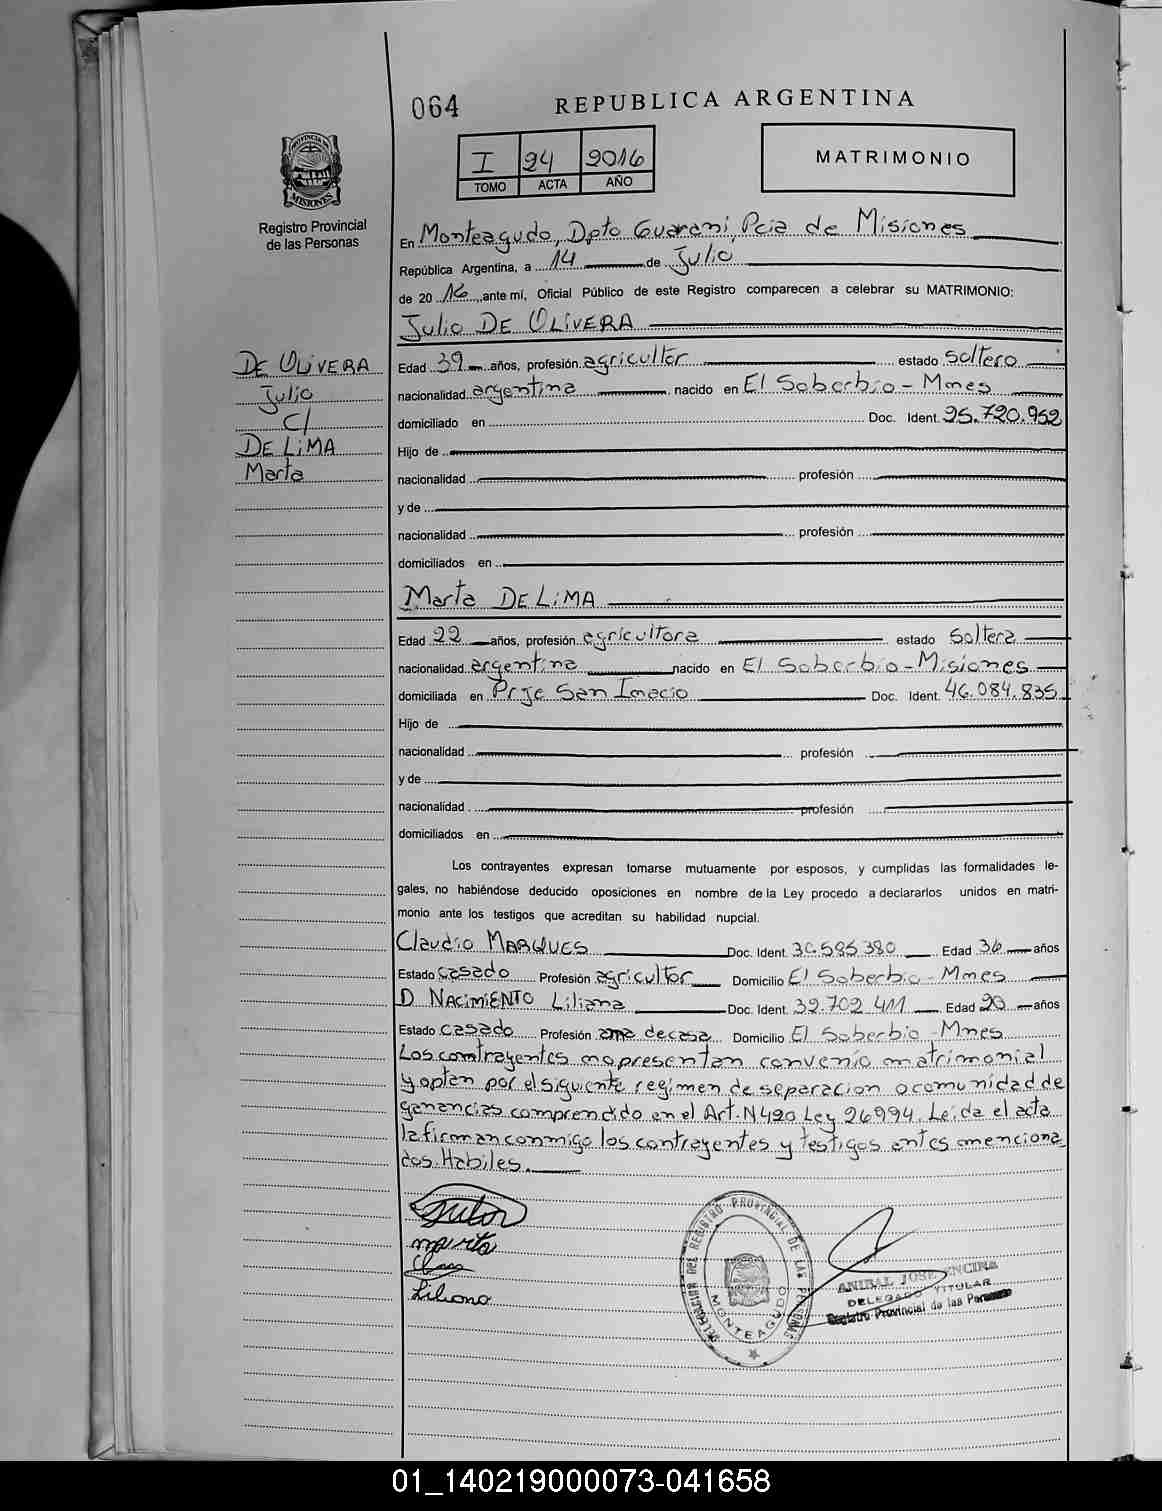 064
REPUBLICA ARGENTINA
PROVINCIA DE MISIONES
I 24 2016
TOMO ACTA AÑO
MATRIMONIO
Registro Provincial
de las Personas
En Monteagudo, Dpto Guarani, Pcia de Misiones
República Argentina, a 14 de Julio
de 20 16 ,ante mí, Oficial Público de este Registro comparecen a celebrar su MATRIMONIO:
Julio DE OLIVERA
DE OLIVERA
Julio
C/
DE LiMA
Marta
Edad 39 años, profesión agricultor estado soltero
nacionalidad argentina nacido en El Soberbio - Mnes
domiciliado en Doc. Ident. 25.720.952
Hijo de
nacionalidad profesión
y de
nacionalidad profesión
domiciliados en
Marta DE LiMA
Edad 22 años, profesión agricultora estado Soltera
nacionalidad argentina nacido en El Soberbio - Misiones
domiciliada en Prje San Inacio Doc. Ident. 46.084.835
Hijo de
nacionalidad profesión
y de
nacionalidad profesión
domiciliados en
Los contrayentes expresan tomarse mutuamente por esposos, y cumplidas las formalidades le-
gales, no habiéndose deducido oposiciones en nombre de la Ley procedo a declararlos unidos en matri-
monio ante los testigos que acreditan su habilidad nupcial.
Claudio MARQUES Doc. Ident. 30.585.380 Edad 36 años
Estado casado Profesión agricultor Domicilio El Soberbio - Mnes
D NACiMiENTO Liliana Doc. Ident. 39.702.411 Edad 20 años
Estado casado Profesión ama de casa Domicilio El Soberbio - Mnes
Los contrayentes no presentan convenio matrimonial
y optan por el siguiente regimen de separacion o comunidad de
ganancias comprendido en el Art. N 420 Ley 26994. Leida el acta
la firman conmigo los contrayentes y testigos antes menciona
dos. Habiles.
Julio
marta
Liliana
DELEGACION DEL REGISTRO PROVINCIAL DE LAS PERSONAS
MONTEAGUDO
ANIBAL JOSE ENCINA
DELEGADO TITULAR
Registro Provincial de las Personas
01_140219000073-041658